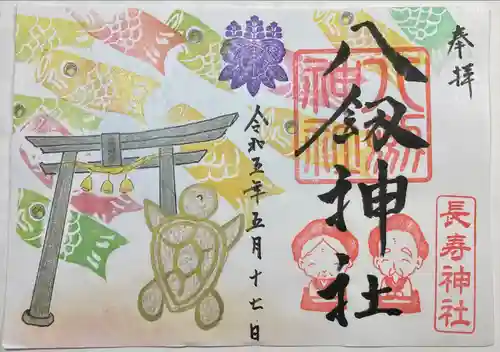 奉拝
八剱神社
八剱神社
長寿神社
令和五年五月十七日